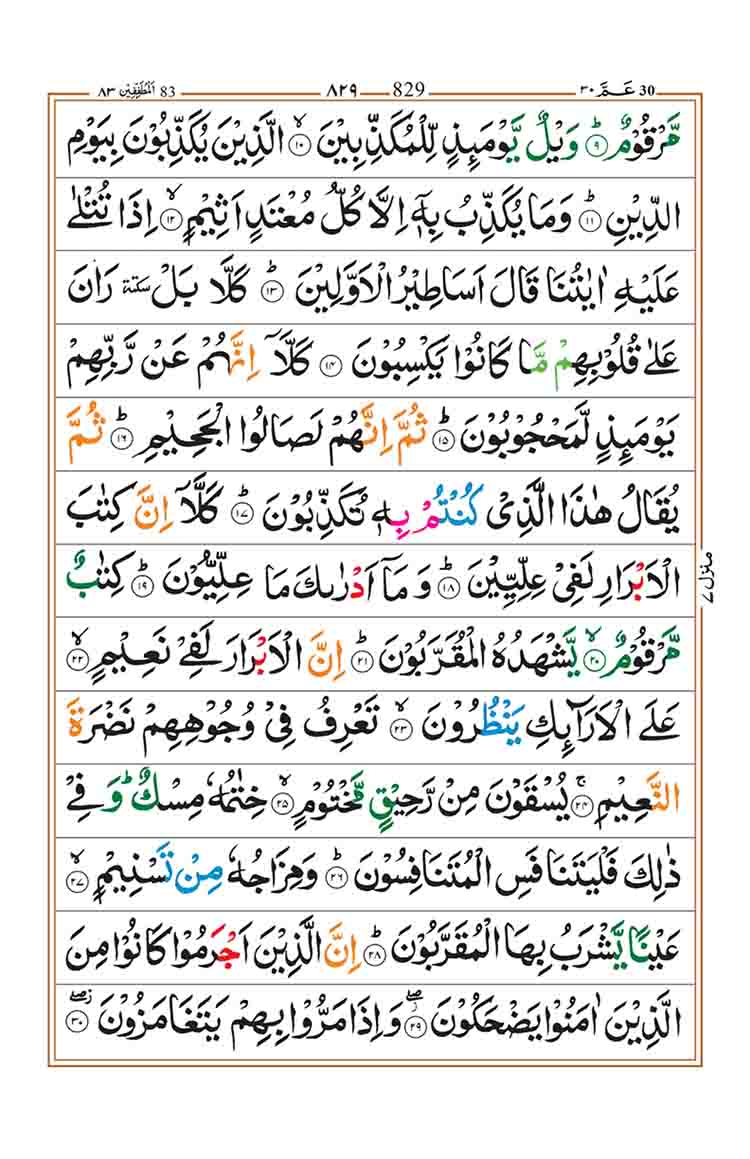 عَـمَّ ٣٠ 30 829 ٨٢٩ 83 اَلْمُطَفِّفِيْن ٨٣
مَّرْقُوْمٌ ؕ ﴿۹﴾ وَيْلٌ يَّوْمَىِٕذٍ لِّلْمُكَذِّبِيْنَ ۙ ﴿۱۰﴾ الَّذِيْنَ يُكَذِّبُوْنَ بِيَوْمِ
الدِّيْنِ ؕ ﴿۱۱﴾ وَمَا يُكَذِّبُ بِهٖۤ اِلَّا كُلُّ مُعْتَدٍ اَثِيْمٍ ۙ ﴿۱۲﴾ اِذَا تُتْلٰى
عَلَيْهِ اٰيٰتُنَا قَالَ اَسَاطِيْرُ الْاَوَّلِيْنَ ؕ ﴿۱۳﴾ كَلَّا بَلْ سكتة رَانَ
عَلٰى قُلُوْبِهِمْ مَّا كَانُوْا يَكْسِبُوْنَ ﴿۱۴﴾ كَلَّاۤ اِنَّهُمْ عَنْ رَّبِّهِمْ
يَوْمَىِٕذٍ لَّمَحْجُوْبُوْنَ ؕ ﴿۱۵﴾ ثُمَّ اِنَّهُمْ لَصَالُوا الْجَحِيْمِ ؕ ﴿۱۶﴾ ثُمَّ
يُقَالُ هٰذَا الَّذِىْ كُنْتُمْ بِهٖ تُكَذِّبُوْنَ ؕ ﴿۱۷﴾ كَلَّاۤ اِنَّ كِتٰبَ
الْاَبْرَارِ لَفِىْ عِلِّيِّيْنَ ؕ ﴿۱۸﴾ وَمَاۤ اَدْرٰىكَ مَا عِلِّيُّوْنَ ؕ ﴿۱۹﴾ كِتٰبٌ
مَّرْقُوْمٌ ۙ ﴿۲۰﴾ يَّشْهَدُهُ الْمُقَرَّبُوْنَ ؕ ﴿۲۱﴾ اِنَّ الْاَبْرَارَ لَفِىْ نَعِيْمٍ ۙ ﴿۲۲﴾
عَلَى الْاَرَآىِٕكِ يَنْظُرُوْنَ ۙ ﴿۲۳﴾ تَعْرِفُ فِىْ وُجُوْهِهِمْ نَضْرَةَ
النَّعِيْمِ ۚ ﴿۲۴﴾ يُسْقَوْنَ مِنْ رَّحِيْقٍ مَّخْتُوْمٍ ۙ ﴿۲۵﴾ خِتٰمُهٗ مِسْكٌ ؕ وَفِىْ
ذٰلِكَ فَلْيَتَنَافَسِ الْمُتَنَافِسُوْنَ ؕ ﴿۲۶﴾ وَمِزَاجُهٗ مِنْ تَسْنِيْمٍ ۙ ﴿۲۷﴾
عَيْنًا يَّشْرَبُ بِهَا الْمُقَرَّبُوْنَ ؕ ﴿۲۸﴾ اِنَّ الَّذِيْنَ اَجْرَمُوْا كَانُوْا مِنَ
الَّذِيْنَ اٰمَنُوْا يَضْحَكُوْنَ ۖ ﴿۲۹﴾ وَاِذَا مَرُّوْا بِهِمْ يَتَغَامَزُوْنَ ۖ ﴿۳۰﴾
منزل ۷